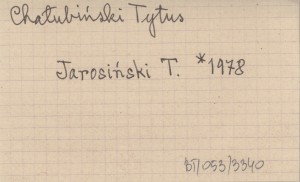 Chałubiński Tytus
Jarosiński T. *1978
BT/053/3340